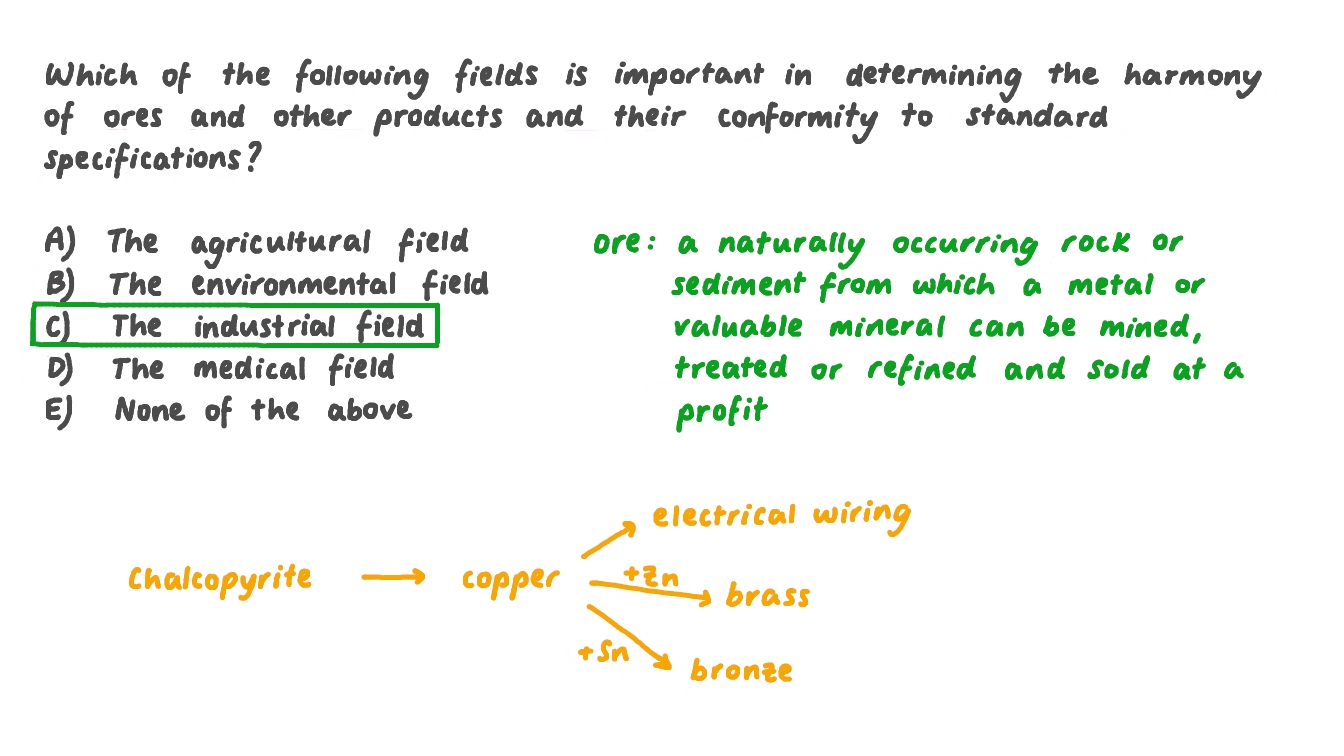 Which of the following fields is important in determining the harmony
of ores and other products and their conformity to standard
specifications?
A) The agricultural field
B) The environmental field
C) The industrial field
D) The medical field
E) None of the above
ore: a naturally occurring rock or
sediment from which a metal or
valuable mineral can be mined,
treated or refined and sold at a
profit
Chalcopyrite → copper
→ electrical wiring
+Zn → brass
+Sn → bronze